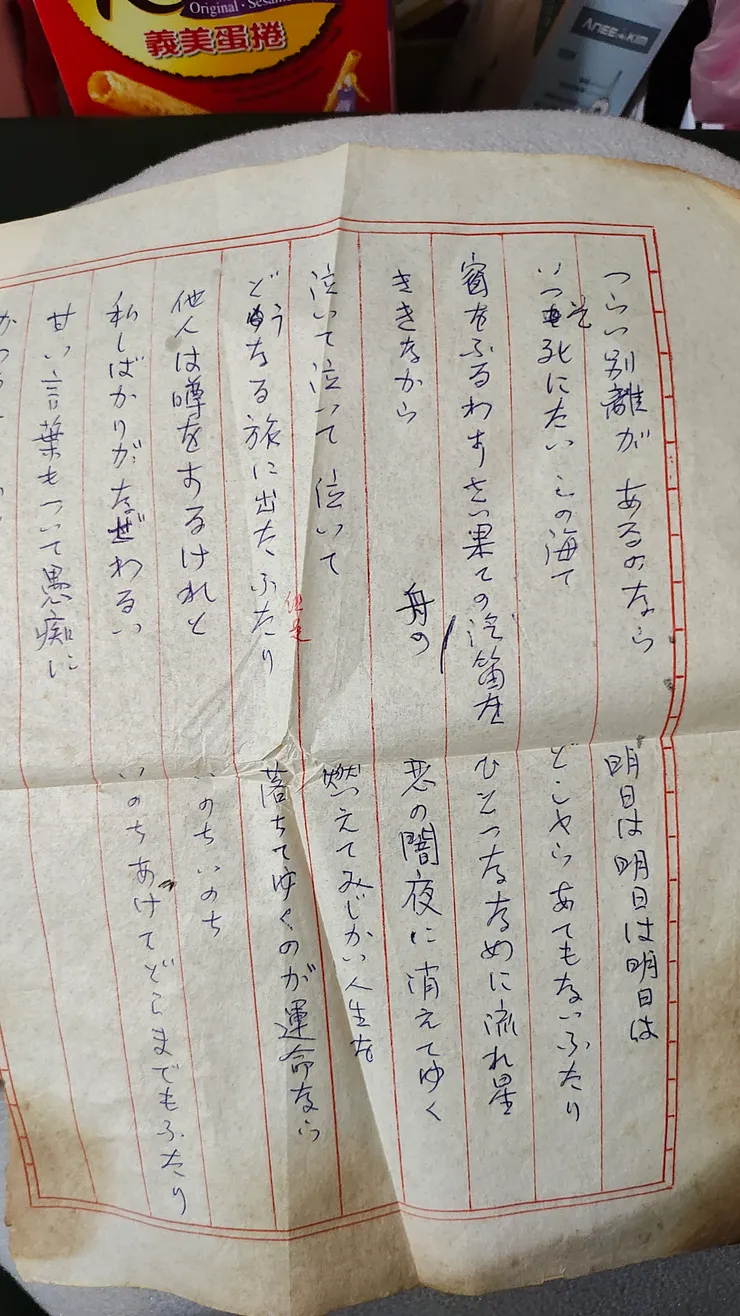 Original · Sesam
義美蛋捲
つらい別離が あるのなら
いつそ死にたい この海て
窓をふるわす さい果ての汽笛を
ききなから
舟の
泣いて泣いて 泣いて
どうなる旅に出たふたり
但是
他人は噂をするけれと
私しばかりがなぜわるい
甘い言葉もついて愚痴に
明日は明日は明日は
どこやらあてもないふたり
ひとつななめに流れ星
悪の闇夜に消えてゆく
燃えてみじかい人生を
落ちてゆくのが運命なら
いのちいのち
いのちあけてどこまでもふたり